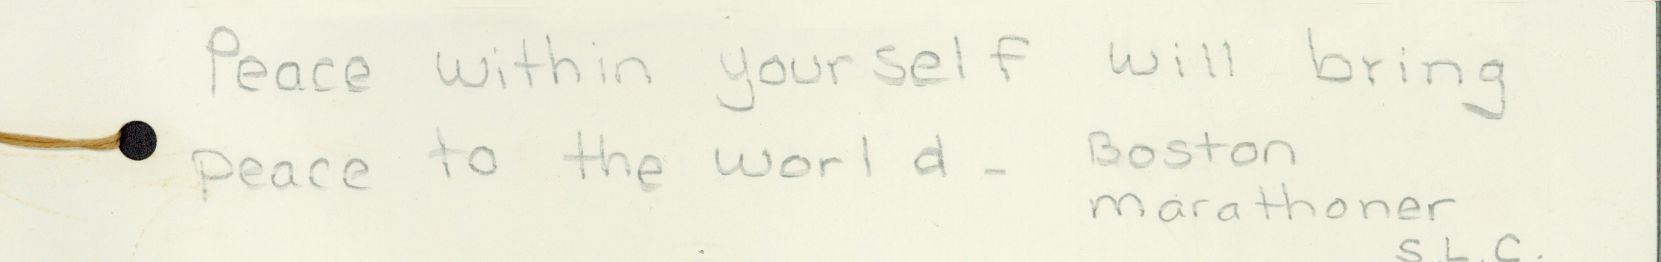 Peace within yourself will bring
peace to the world - Boston
marathoner
S.L.C.